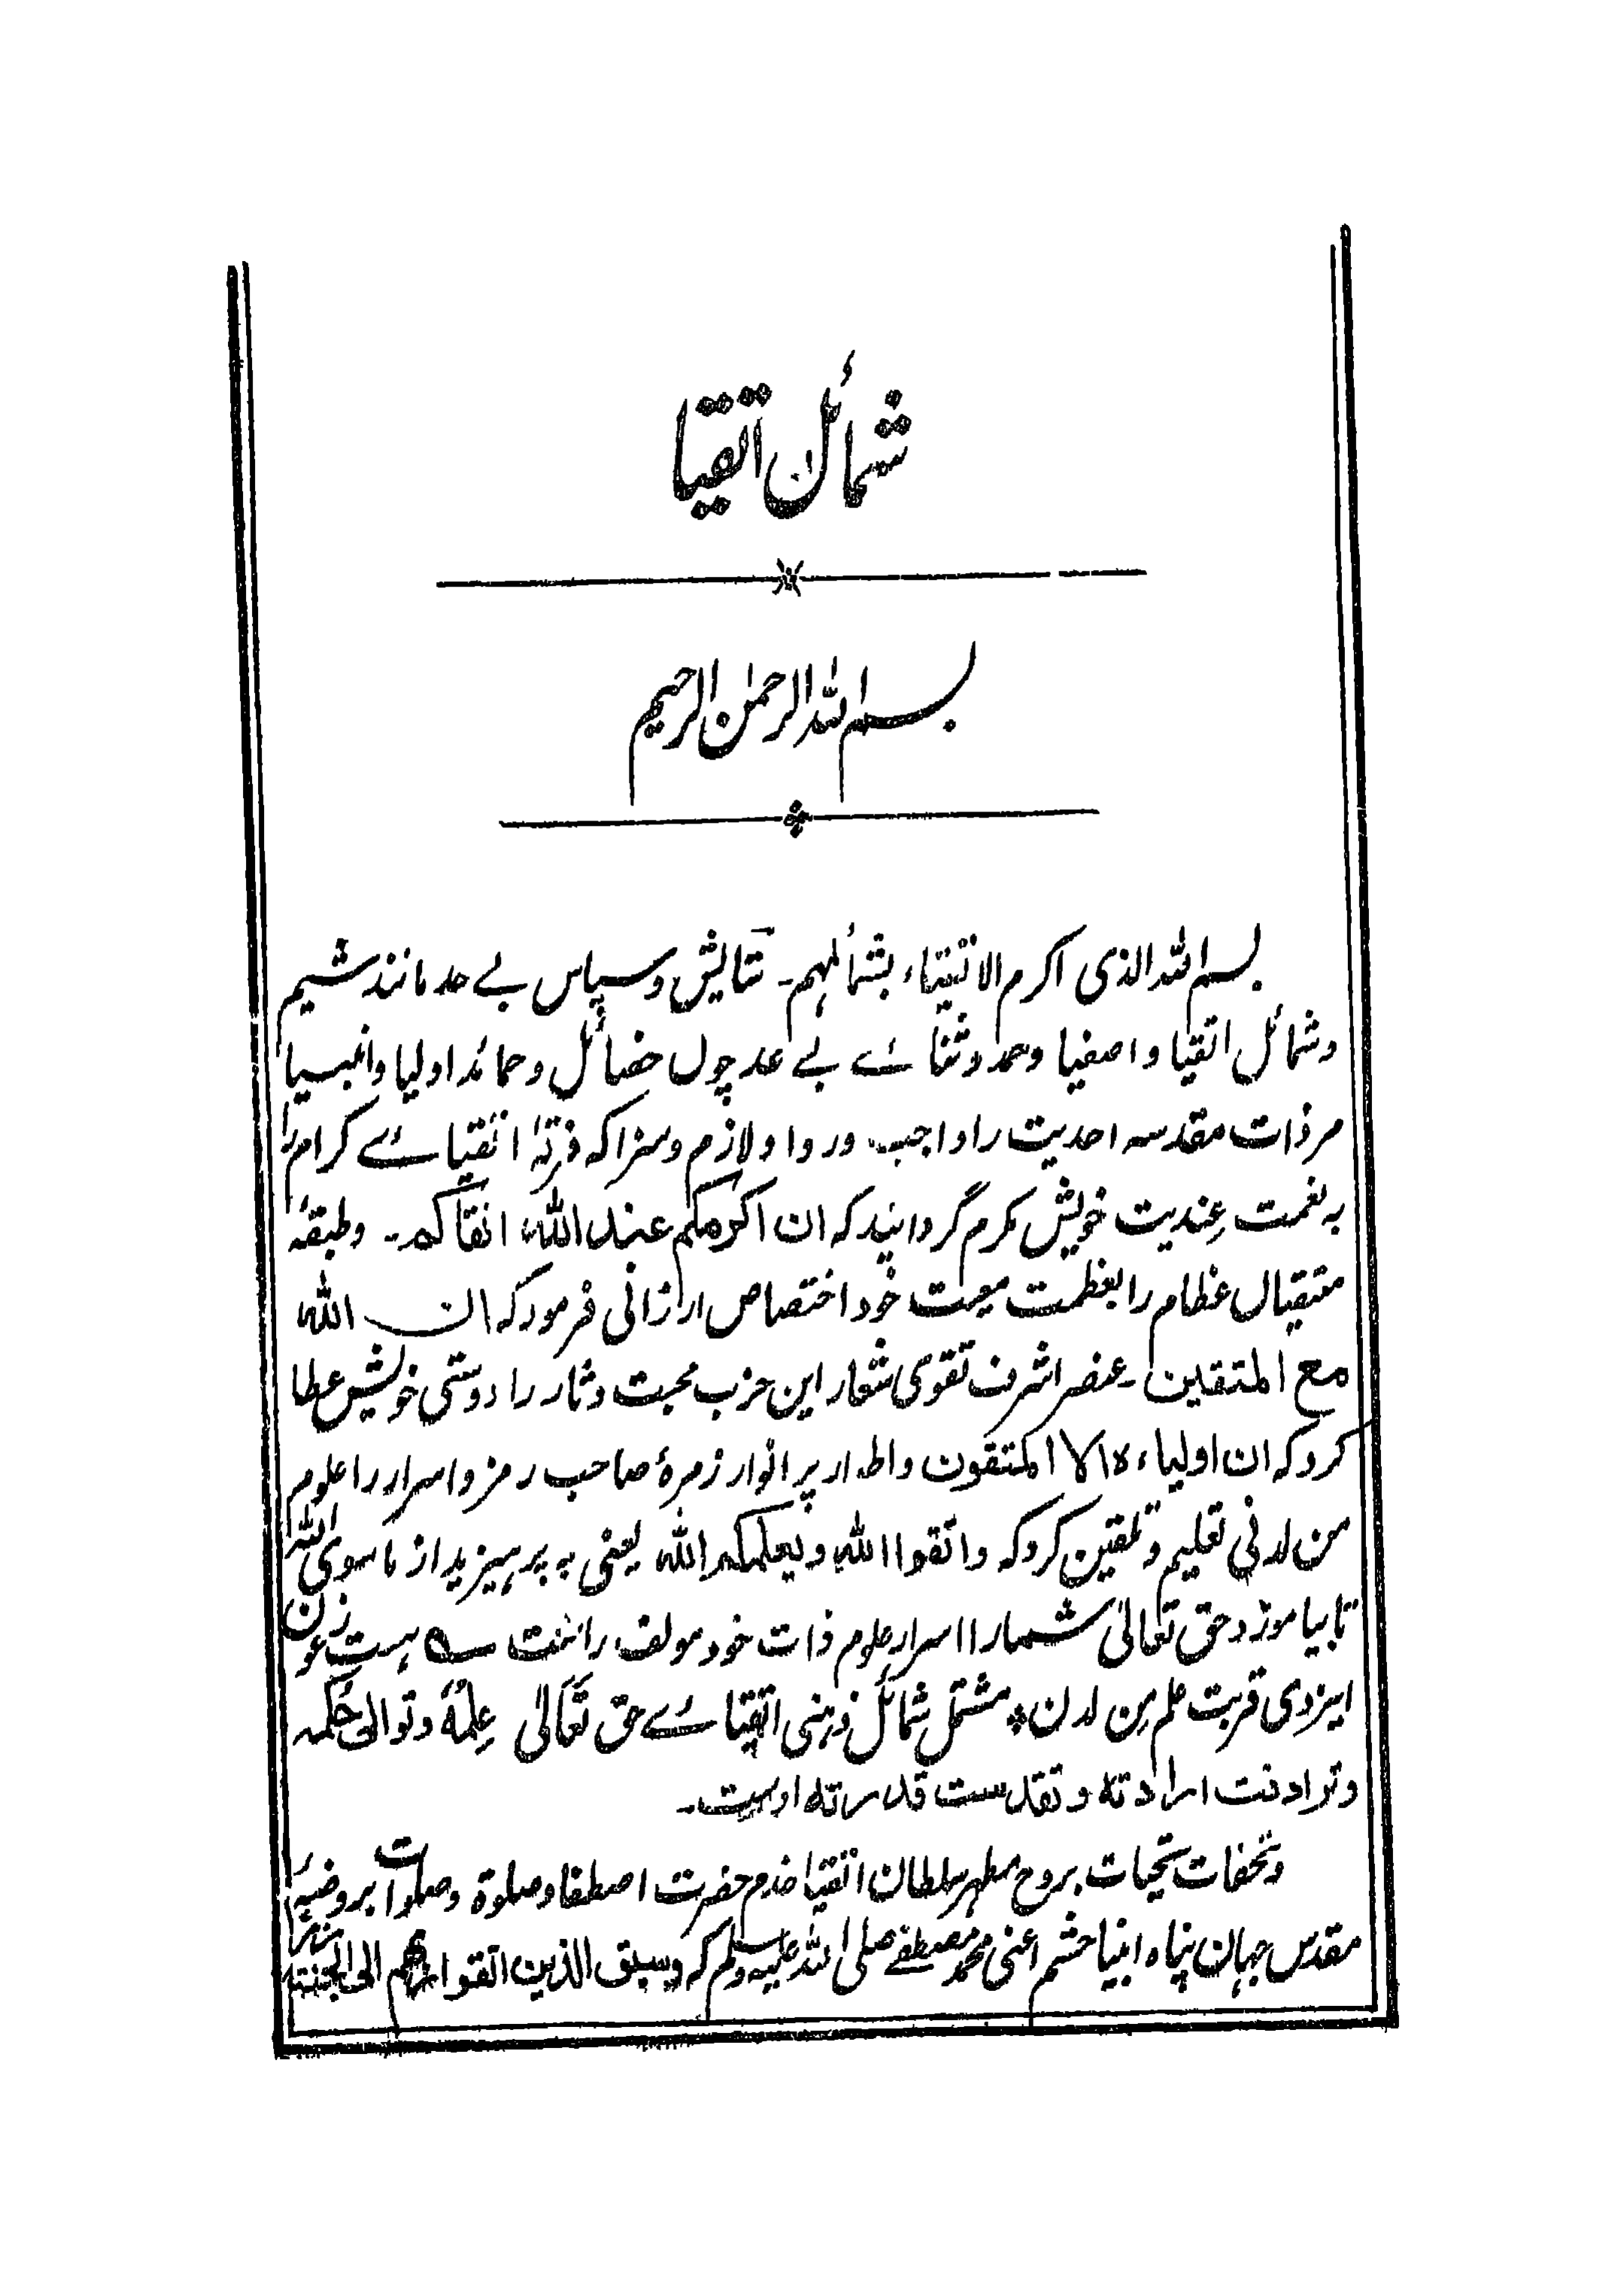 شمائل اتقیا
بسم اللہ الرحمٰن الرحیم
بسم اللہ الذی اکرم الاتقیاء بشمائلہم۔ ستایش و سپاس بے حد مانند شیم
و شمائل اتقیا و اصفیا و حمد و ثنائے بے عد چوں خصائل و حمائد اولیا و انبیا
مر ذات مقدسہ احدیت را واجب و روا و لازم و سزا کہ فرقۂ اتقیائے کرام را
بہ نعمت عِندیت خویش مکرم گردانید کہ ان اکرمکم عند اللہ اتقاکم۔ و طبقۂ
متقیان عظام را بعظمت معیت خود اختصاص ارزانی فرمود کہ ان اللہ
مع المتقین۔ عنصر اشرف تقویٰ شعار این حزب محبت دثار را دوستی خویش عطا
کرد کہ ان اولیاءہ الا المتقون و اطوار پر انوار زمرۂ صاحب رمز و اسرار را علوم
من لدنی تعلیم و تلقین کرد کہ واتقوا اللہ و یعلمکم اللہ یعنی بہ پرہیزید از ماسوی اللہ
تا بیاموزد حق تعالیٰ شمارا اسرار علوم ذات خود مولف راست ؎ ہست عون
ایزدی قربت علم مِن لدن * مشتمل شمائل ذہنی اتقیائے حق تعالیٰ عِلمُہٗ و توالیٰ حُکمہ
و ترادفت ارادتہ و تقدست قدرتہ اوست۔
و تحفات تحیات بروح مطہر سلطان اتقیا خدم حضرت اصطفا و صلوٰۃ و صلوات بر روضۂ
مقدس جہان پناہ انبیا حشم اعنی محمد مصطفےٰ صلی اللہ علیہ وسلم کہ وسیق الذین اتقوا ربہم الی الجنۃ